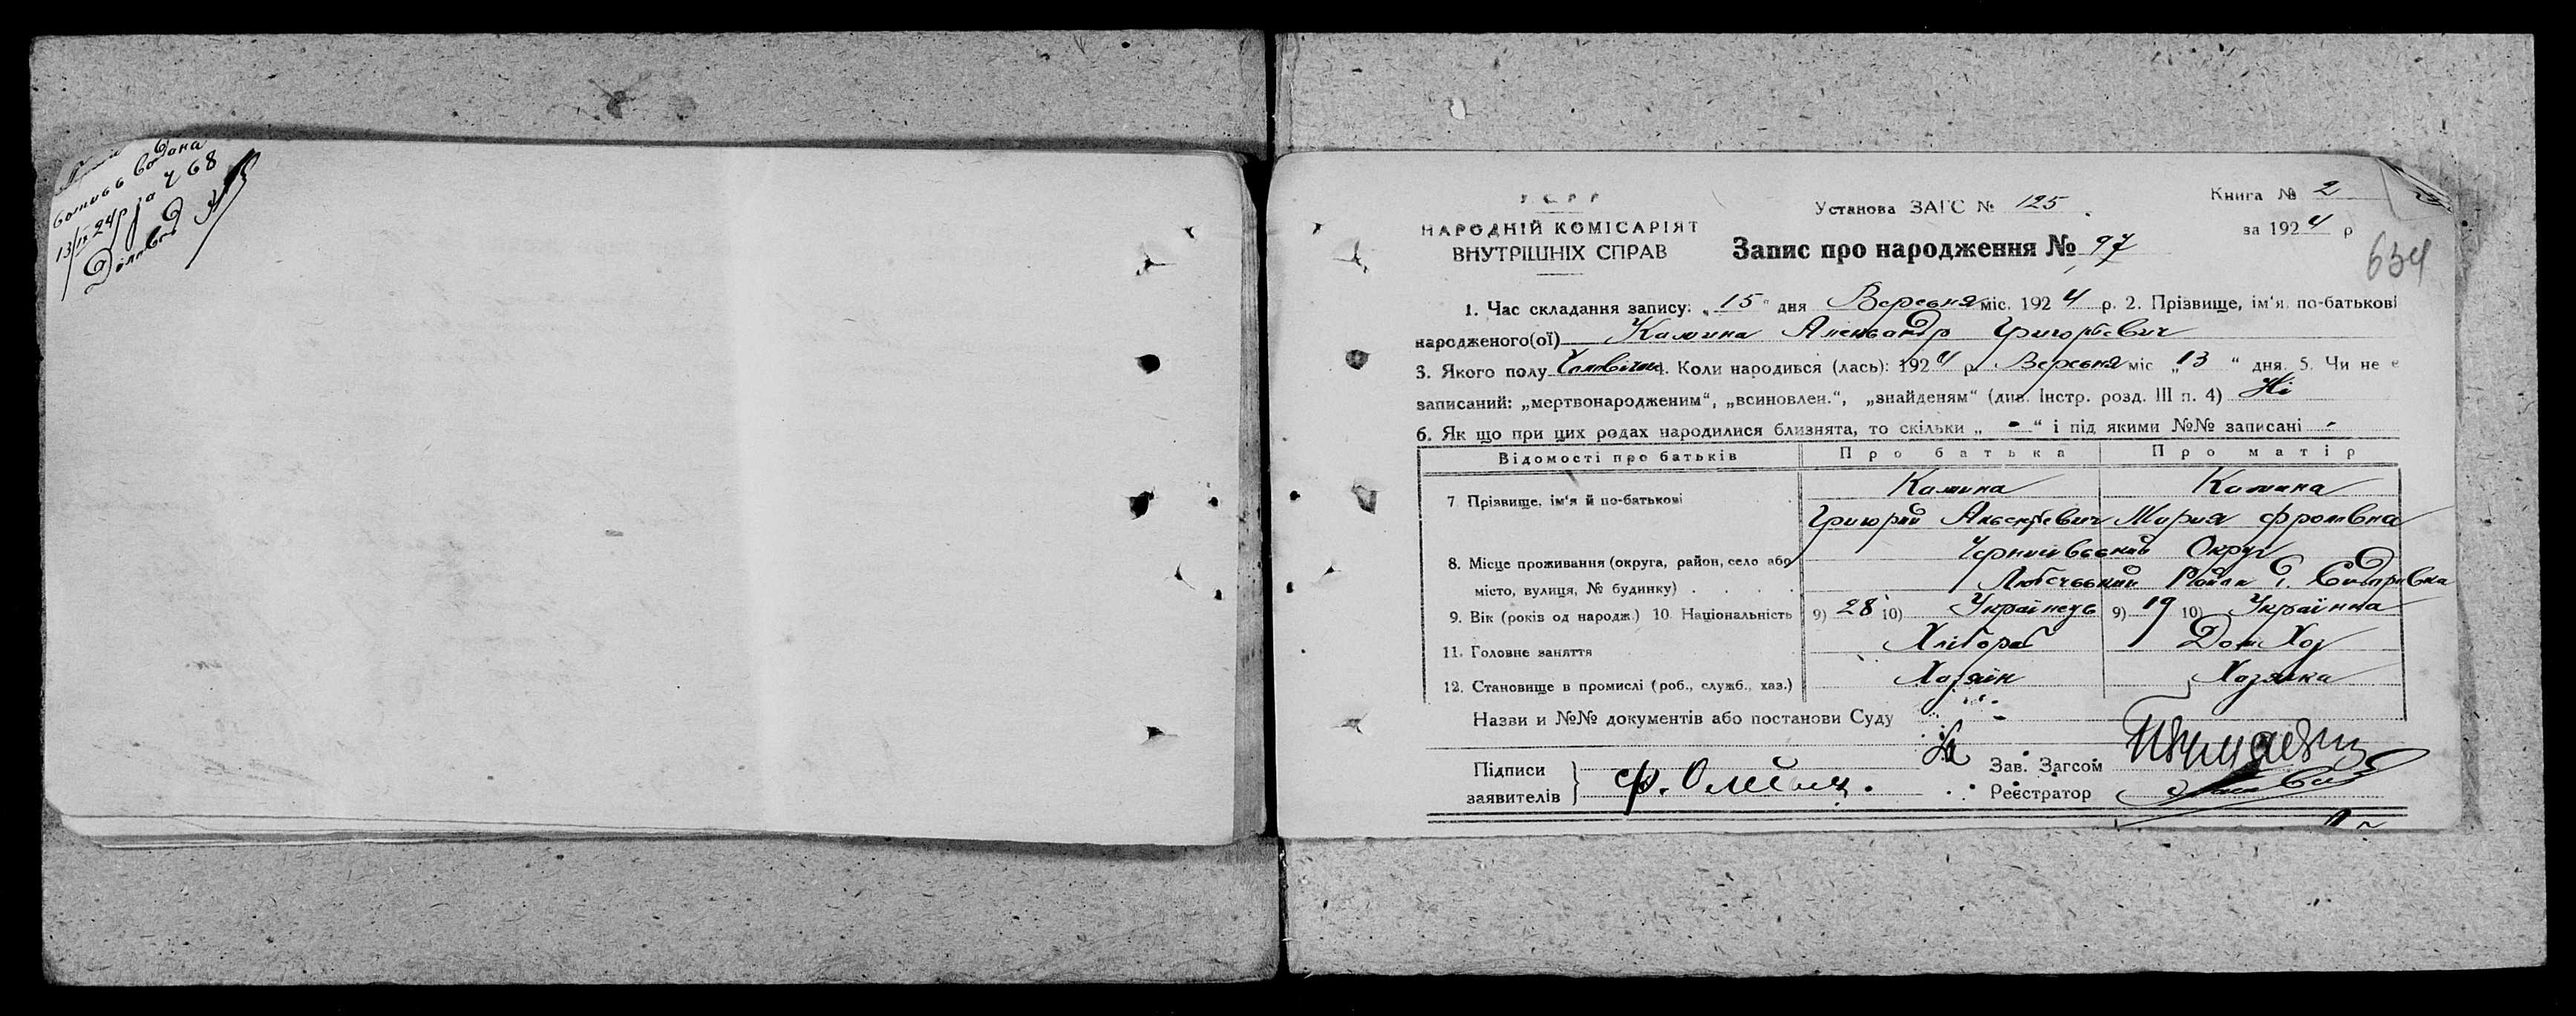 13/IX 24р за Ч 68
У С Р Р
НАРОДНІЙ КОМІСАРІЯТ
ВНУТРІШНІХ СПРАВ
Установа ЗАГС № 125
Книга № 2
за 1924 р
Запис про народження № 97
634
1. Час складання запису: „15" дня Вересня міс. 1924 р. 2. Прізвище, ім'я по-батькові
народженого(ої) Калина Александр Григорʼевич
3. Якого полу Чоловічои 4. Коли народився (лась): 1924 р Вересня міс „13" дня. 5. Чи не е
записаний: „мертвонародженим", „всиновлен.", „знайденям" (див. Інстр. розд. III п. 4) Ні
6. Як що при цих родах народилися близнята, то скільки „-" і під якими №№ записані -
Відомості про батьків Про батька Про матір
7. Прізвище, ім'я й по-батькові Калина Калина
Григорий Мария
8. Місце проживання (округа, район, село або Округ
місто, вулиця, № будинку) Любечський Район
9. Вік (років од народж.) 10. Національність 9) 28 10) Українець 9) 19 10) Українка
11. Головне заняття Хлібороб Дом Хоз
12. Становище в промислі (роб., служб., хаз.) Хазяїн Хазяйка
Назви и №№ документів або постанови Суду -
Підписи
заявителів Ф. Олейник.
Зав. Загсом
Реєстратор